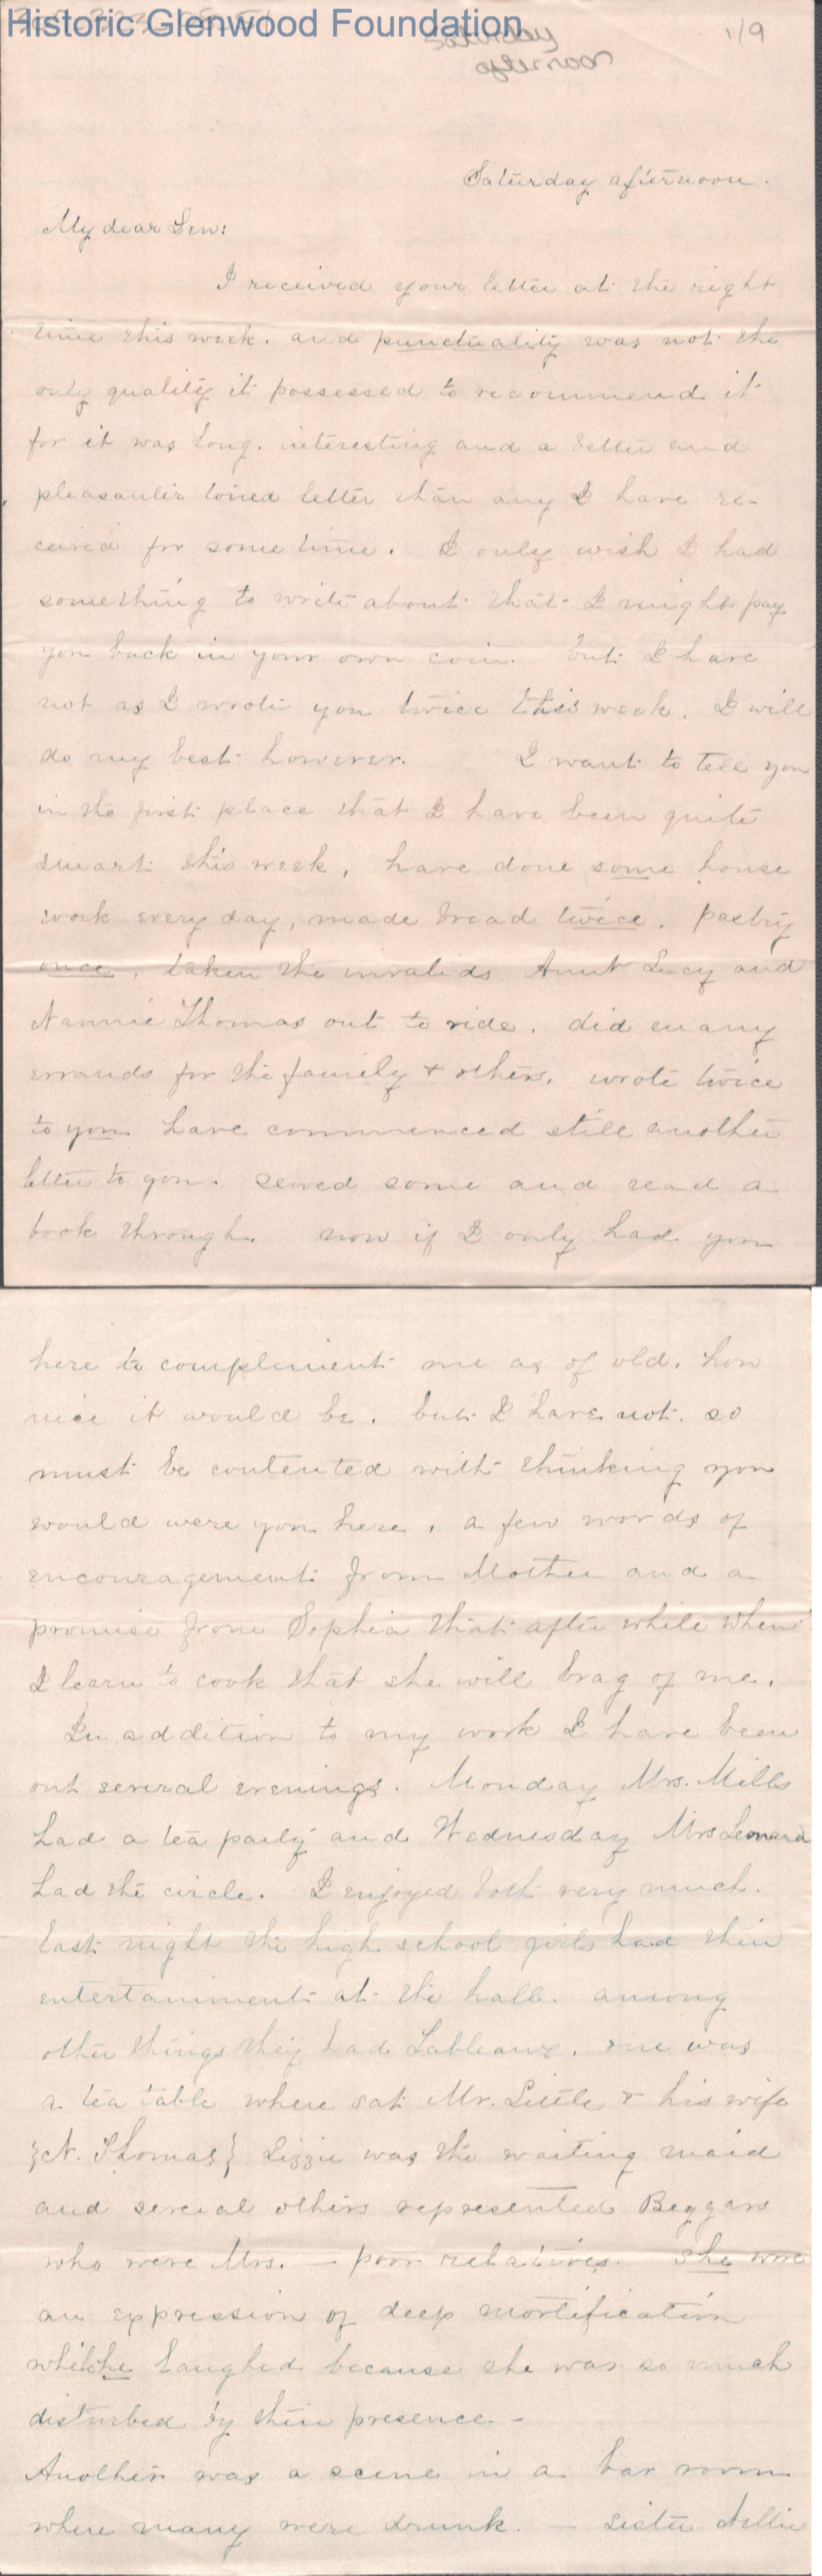 Historic Glenwood Foundation
Saturday
afternoon
1/9
Saturday afternoon.
My dear Lew:
I received your letter at the right
time this week. and punctuality was not the
only quality it possessed to recommend it
for it was long. interesting and a better and
pleasanter toned letter than any I have re-
ceived for some time. I only wish I had
something to write about that I might pay
you back in your own coin. but I have
not as I wrote you twice this week. I will
do my best however. I want to tell you
in the first place that I have been quite
smart this week, have done some house
work every day, made bread twice. pastry
once, taken the invalids Aunt Lucy and
Nannie Thomas out to ride. did many
errands for the family & others. wrote twice
to you have commenced still another
letter to you. sewed some and read a
book through. now if I only had you
here to compliment me as of old. how
nice it would be. but I have not. so
must be contented with thinking you
would were you here, a few words of
encouragement from Mother and a
promise from Sophia that after while when
I learn to cook that she will brag of me.
In addition to my work I have been
out several evenings. Monday Mrs. Mills
had a tea party and Wednesday Mrs Leonard
had the circle. I enjoyed both very much.
last night the high school girls had their
entertainment at the hall. among
other things they had Tableaux. one was
a tea table where sat Mr. Little & his wife
{N. Thomas} Lizzie was the waiting maid
and several others represented Beggars
who were Mrs. — poor relatives. She wore
an expression of deep mortification
while he laughed because she was so much
disturbed by their presence -
Another was a scene in a bar room
where many were drunk. — sister Nellie